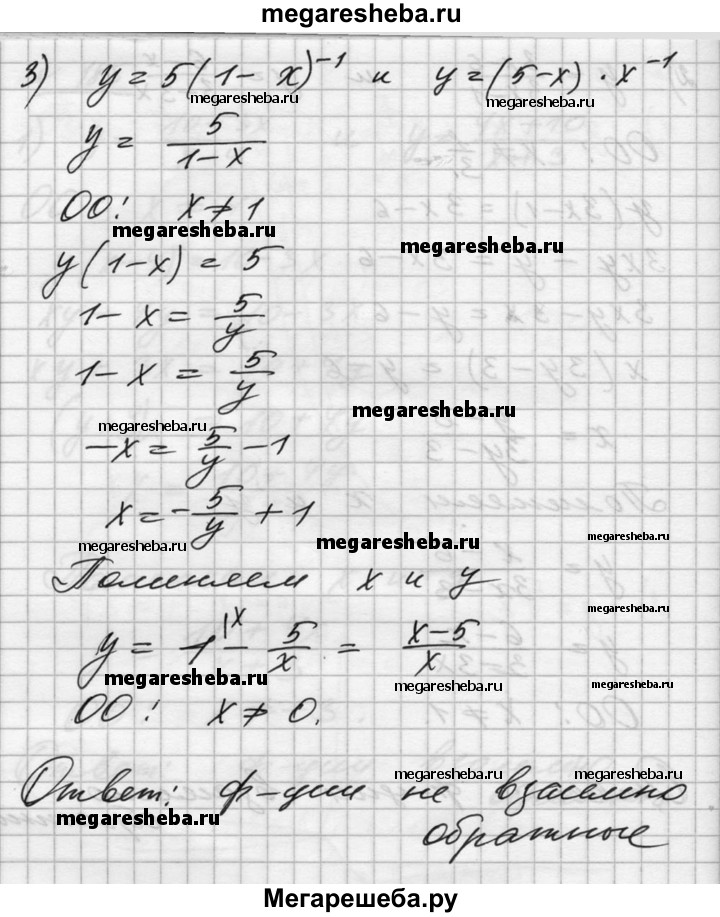 megaresheba.ru
3) y = 5(1 - x)⁻¹ и y = (5-x) · x⁻¹
megaresheba.ru megaresheba.ru
y = 5/(1-x)
ОО: x ≠ 1
megaresheba.ru megaresheba.ru
y(1-x) = 5
1 - x = 5/y
1 - x = 5/y
megaresheba.ru
megaresheba.ru
-x = 5/y - 1
x = -5/y + 1
megaresheba.ru megaresheba.ru megaresheba.ru
Поменяем x и y
megaresheba.ru
y = 1\x - 5/x = (x-5)/x
megaresheba.ru megaresheba.ru megaresheba.ru
ОО: x ≠ 0.
megaresheba.ru megaresheba.ru
Ответ: ф-ции не взаимно
megaresheba.ru
обратные
Мегарешеба.ру